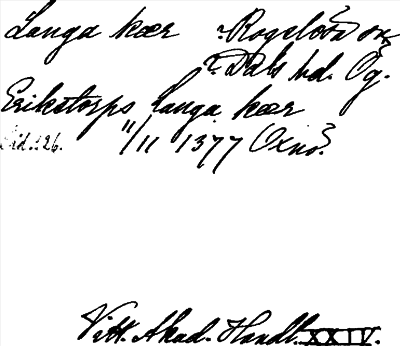 Langa kær Rogslösa sn
Dals hd. Ög.
Erikstorps Langa kær
Sid. 126. 11/11 1377 Oxnö.
Vitt. Akad. Handl. XXIV.